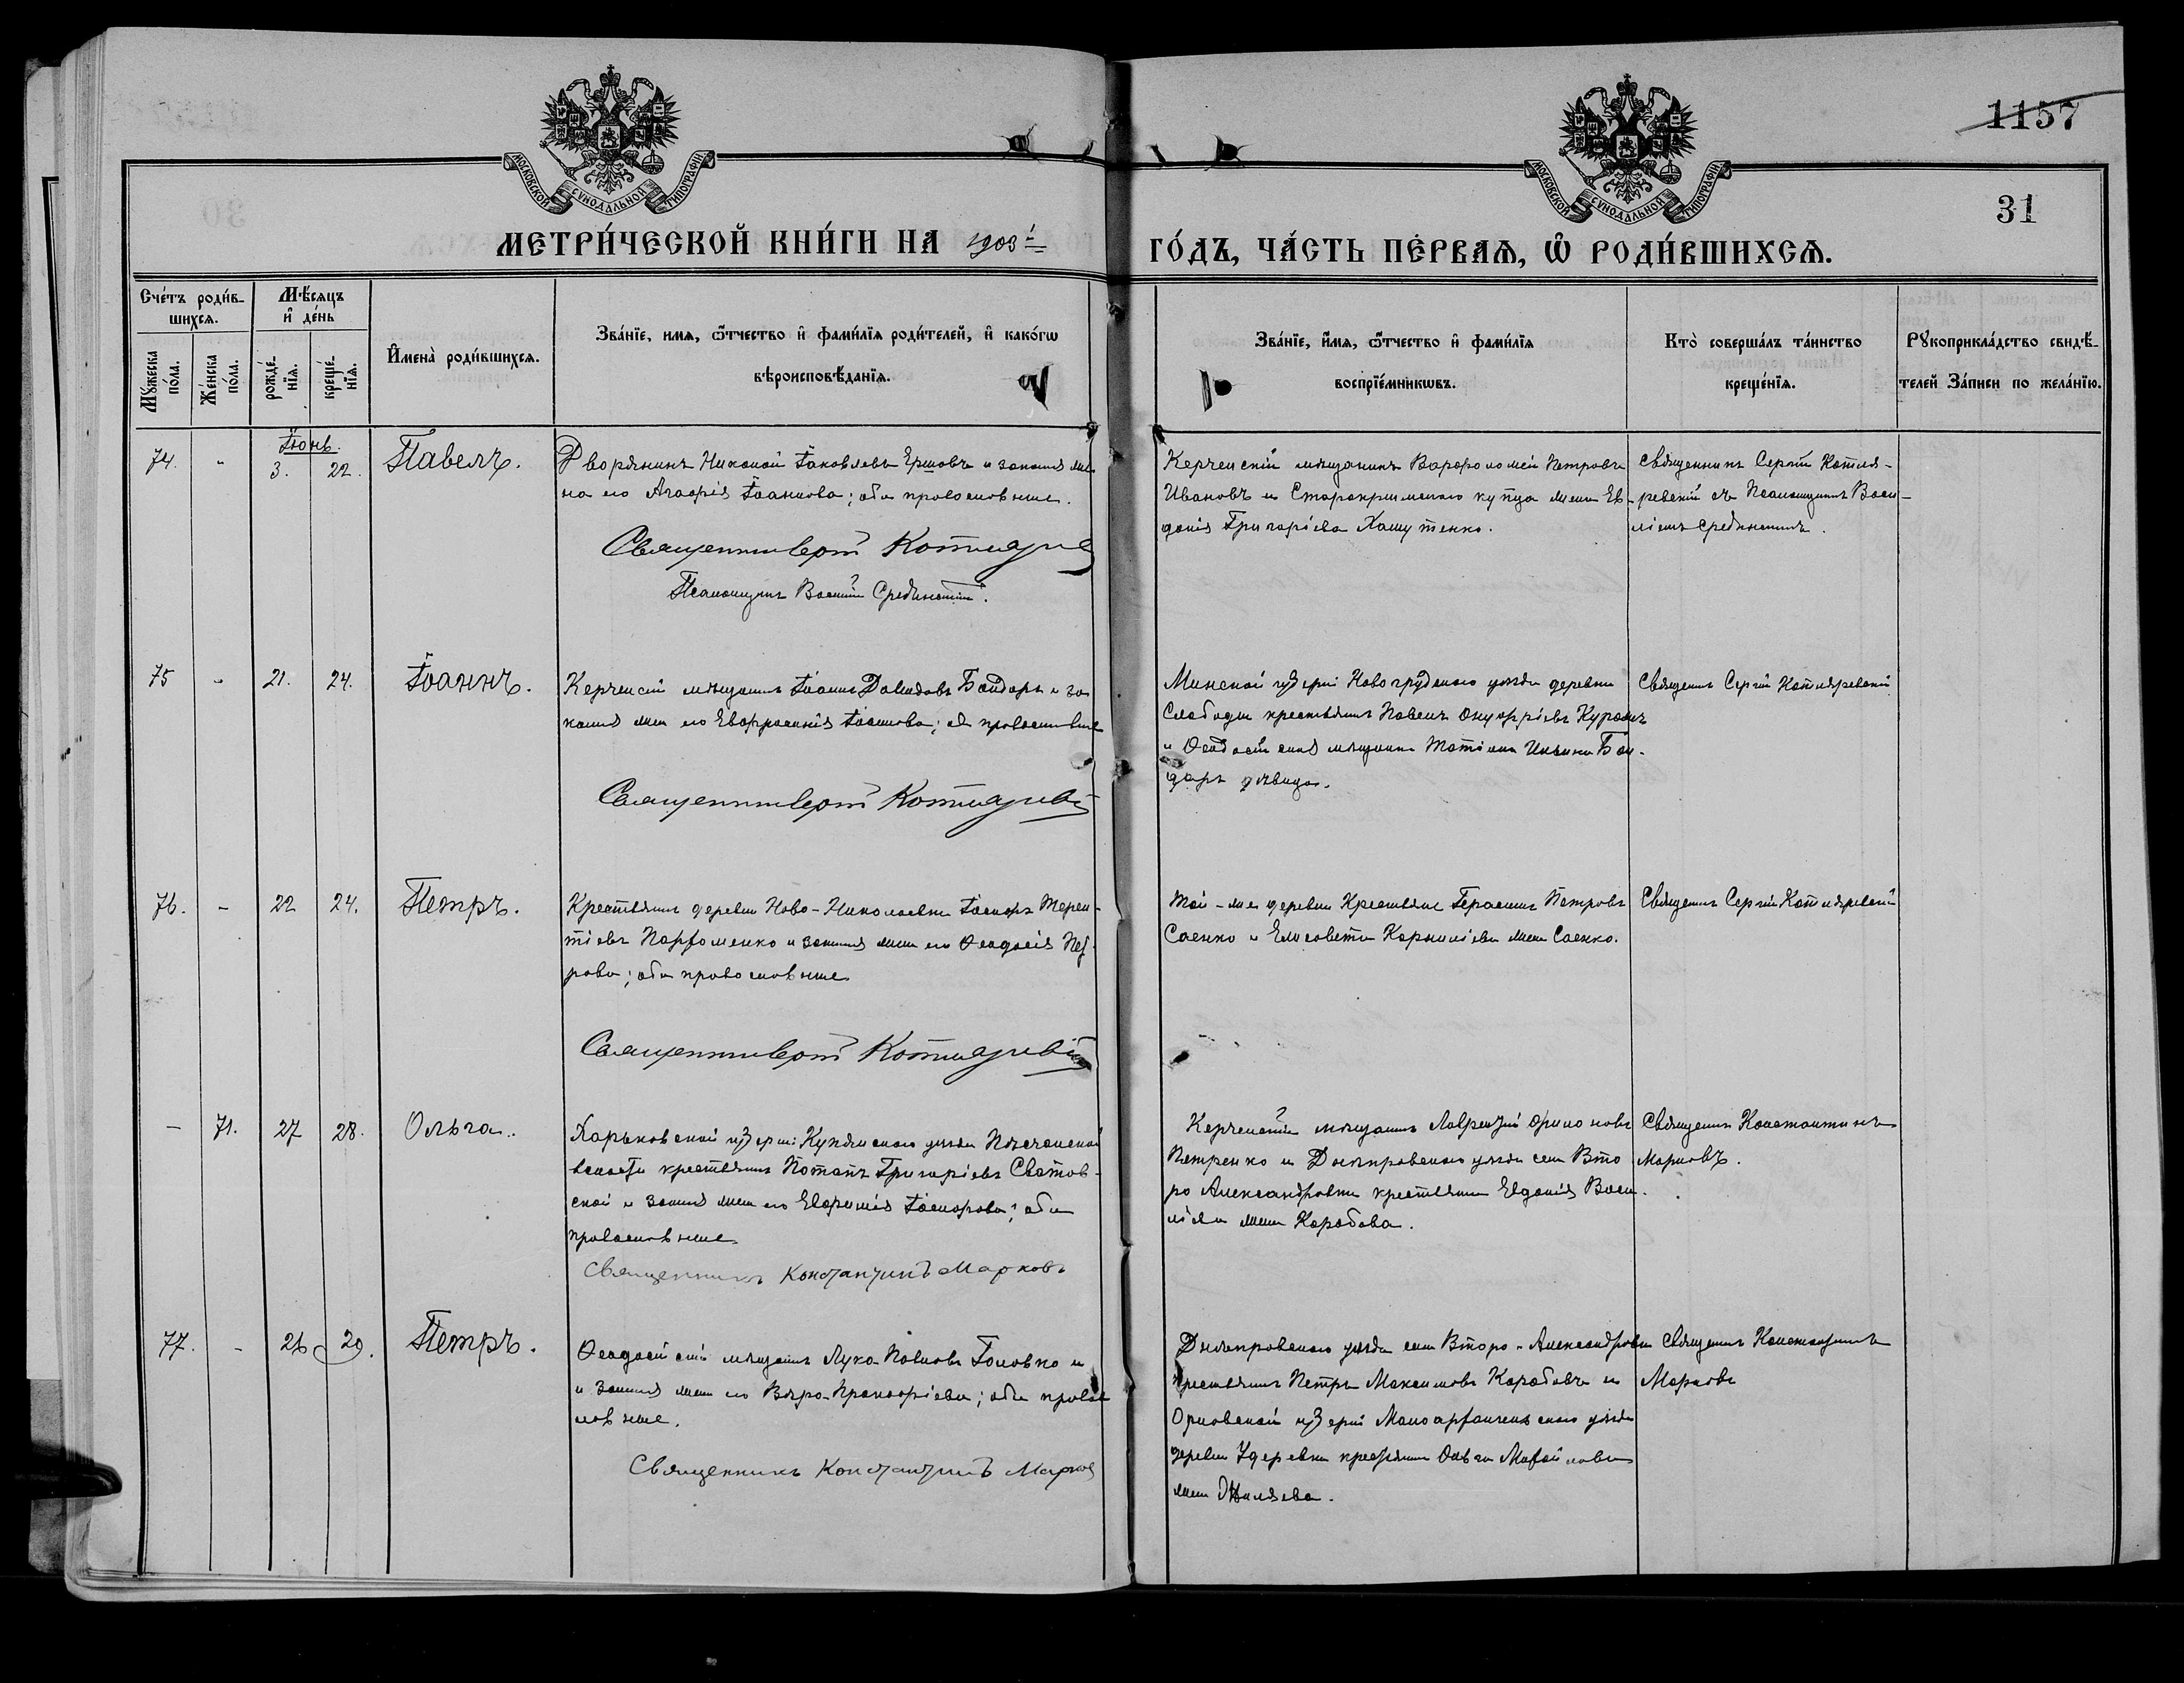 1157
31
МОСКОВСКОЙ СѴНОДАЛЬНОЙ ТИПОГРАФІИ.
МОСКОВСКОЙ СѴНОДАЛЬНОЙ ТИПОГРАФІИ.
МЕТРИ́ЧЕСКОЙ КНИ́ГИ НА 1903й ГО́ДЪ, ЧА́СТЬ ПЕ́РВАѦ, Ѿ РОДИ́ВШИХСѦ.
Сче́тъ роди́в-
шихсѧ.
Мꙋ́жеска
по́ла.
Же́нска
по́ла.
Мѣ́сѧцъ
и҆ де́нь
рожде́-
нїѧ.
креще́-
нїѧ.
И҆мена̀ роди́вшихсѧ.
Зва́нїе, имѧ, ѿтчество и҆ фами́лїѧ роди́телей, и҆ како́гѡ
вѣроисповѣ́данїѧ.
Зва́нїе, и҆́мѧ, ѿтчество и҆ фами́лїѧ
воспрїе́мникѡвъ.
Кто̀ соверша́лъ та́инство
креще́нїѧ.
Рꙋкоприкла́дство свидѣ́-
телей За́писи по жела́нїю.
74. " Іюнь. 3. 22. Павелъ.
Дворянинъ Николай Іаковлевъ Ершовъ и законая же-
на его Агафія Іоаннова; оба православные.
Священник Сергій Котляревскій
Псаломщикъ Василій Срединскій.
Керченскій мѣщанинъ Варфоломей Петровъ
Ивановъ и Старокрымскаго купца жена Ев-
докія Григорьева Хашутенко.
Священникъ Сергій Котля-
ревскій съ Псаломщикомъ Васи-
ліемъ Срединскимъ.
75 " 21. 24. Іоаннъ.
Керченскій мѣщанинъ Іоаннъ Давидовъ Бондарь и за-
коная жена его Евфросинія Іоаннова; оба православные
Священник Сергій Котляревскій
Минской губерніи Новогрудскаго уѣзда деревни
Слободы крестьянинъ Павелъ Онуфріевъ
и Ѳеодосійская мѣщанка Татіана Ильина Бон-
дарь дѣвица.
Священникъ Сергій Котляревскій
76. - 22 24. Петръ.
Крестьянинъ деревни Ново-Николаевки Іосифъ Терен-
тіевъ Парфоменко и законая жена его Ѳеодосія Пет-
рова; оба православные
Священник Сергій Котляревскій
Той-же деревни Крестьяне Герасимъ Петровъ
Саенко и Елисавета Корниліева жена Саенко.
Священникъ Сергій Котляревскій
- 71. 27 28. Ольга.
Харьковской губерніи Купянскаго уѣзда Песчанской
волости крестьянинъ Потапъ Григоріевъ Сватов-
ской и законая жена его Евфимія Іосифова; оба
православные
Священникъ Константинъ Марковъ
Керченскій мѣщанинъ Лаврентій
Петренко и Днѣпровскаго уѣзда села Вто-
ро Александровки крестьянина Евдокія Васи-
ліева жена Коробова.
Священникъ Константинъ
Марковъ.
77. - 26 29. Петръ.
Ѳеодосійскій мѣщанинъ Лука Павловъ Головко и
и законая жена его Вѣра Прокофіева; оба право-
славные.
Священникъ Константинъ Марков
Днѣпровскаго уѣзда села Второ-Александровки
крестьянинъ Петръ Максимовъ Коробовъ и
Орловской губерніи Малоархангельскаго уѣзда
деревни Удеревки крестьянина Ольга
жена
Священникъ Константинъ
Марковъ